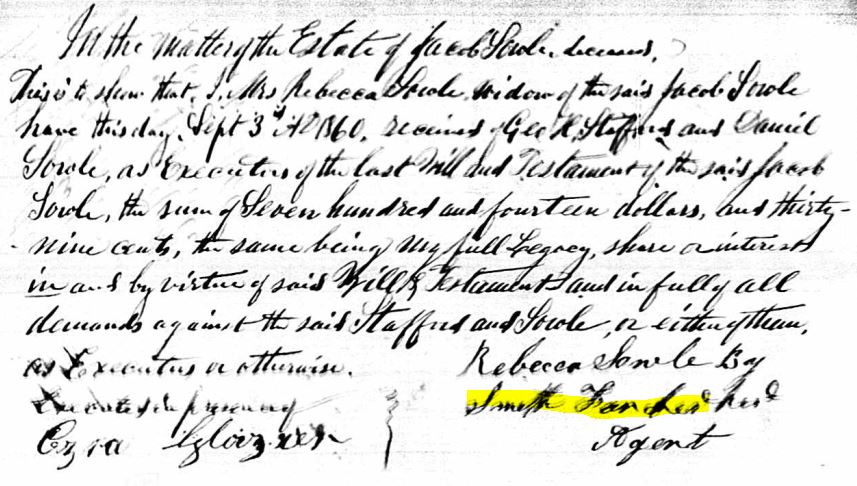 In the matter of the Estate of Jacob Sowle, deceased,
This is to show that, I, Mrs Rebecca Sowle, widow of the said Jacob Sowle
have this day, Sept 3d AD 1860, received of Geo H, Stafford and Daniel
Sowle, as Executors of the last Will and Testament of the said Jacob
Sowle, the sum of Seven hundred and fourteen dollars, and thirty-
nine cents, the same being my full Legacy, share or interest
in and by virtue of said Will & Testament and in full of all
demands against the said Stafford and Sowle, or either of them,
as Executors or otherwise.
Rebecca Sowle By
Executed in presence of
Smith Fancher her
Ezra
Agent